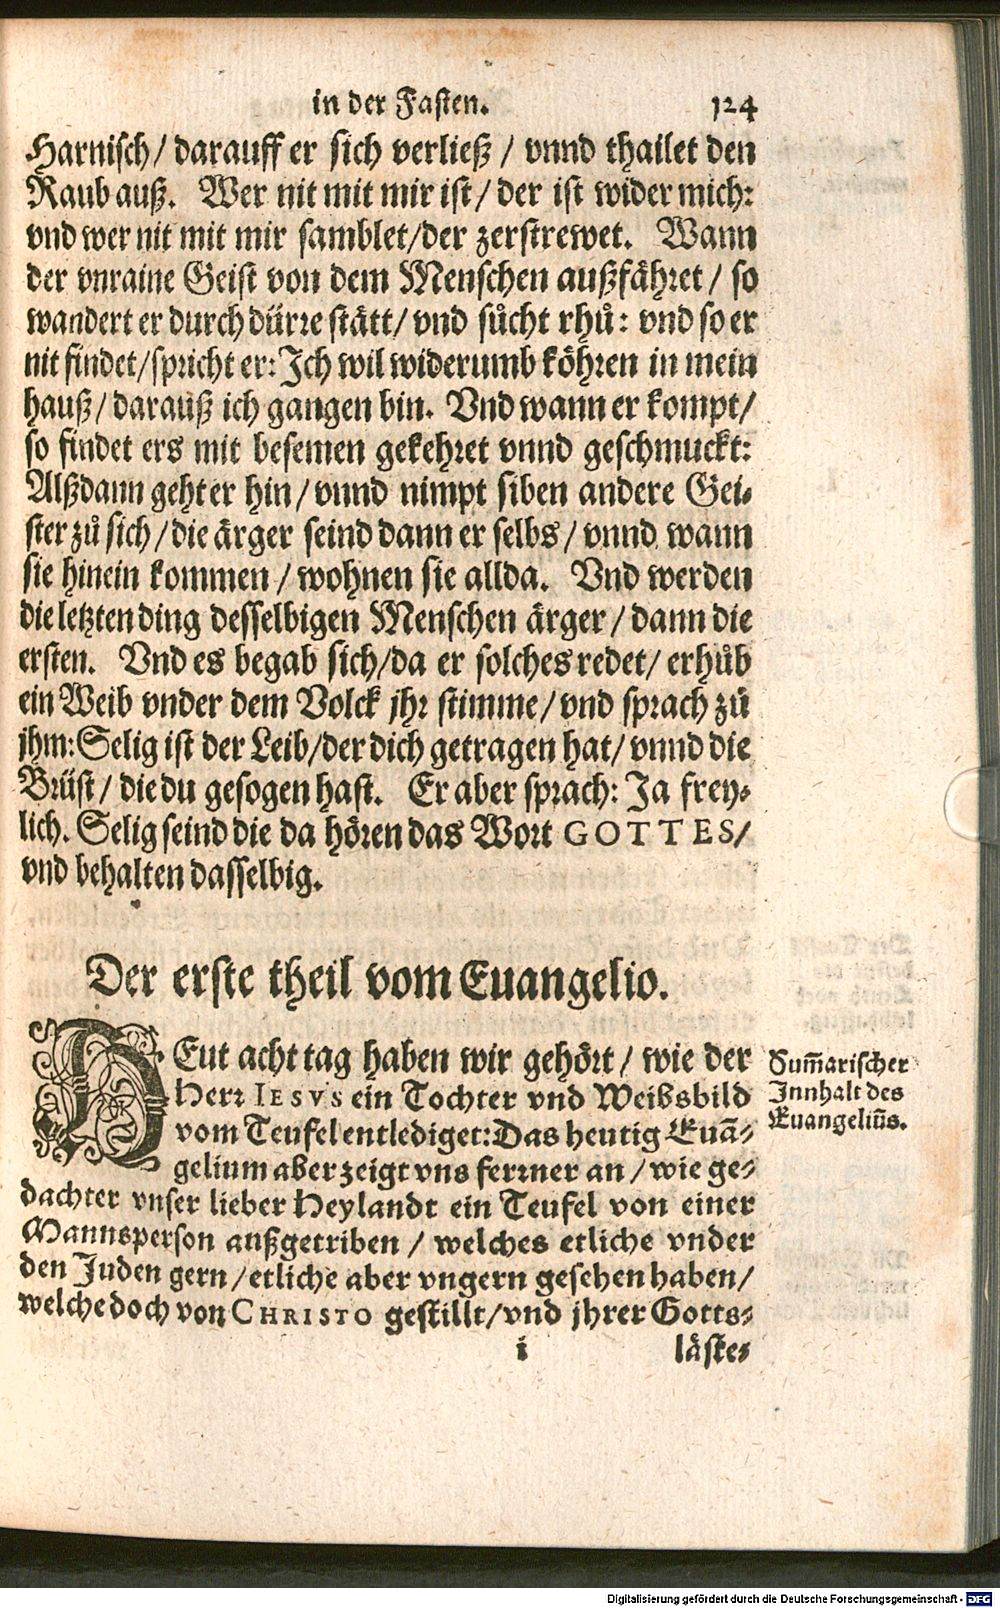 in der Fasten. 124
Harnisch / darauff er sich verließ / vnnd thailet den
Raub auß. Wer nit mit mir ist / der ist wider mich:
vnd wer nit mit mir samblet / der zerstrewet. Wann
der vnraine Geist von dem Menschen außfähret / so
wandert er durch dürre stätt / vnd sůcht rhů: vnd so er
nit findet / spricht er: Ich wil widerumb köhren in mein
hauß / darauß ich gangen bin. Vnd wann er kompt /
so findet ers mit besemen gekehret vnnd geschmuckt:
Alßdann geht er hin / vnnd nimpt siben andere Gei-
ster zů sich / die ärger seind dann er selbs / vnnd wann
sie hinein kommen / wohnen sie allda. Vnd werden
die letzten ding desselbigen Menschen ärger / dann die
ersten. Vnd es begab sich / da er solches redet / erhůb
ein Weib vnder dem Volck jhr stimme / vnd sprach zů
jhm: Selig ist der Leib / der dich getragen hat / vnnd die
Brüst / die du gesogen hast. Er aber sprach: Ja frey-
lich. Selig seind die da hören das Wort GOTTES /
vnd behalten dasselbig.
Der erste theil vom Euangelio.
HEut acht tag haben wir gehört / wie der
Herr IESVS ein Tochter vnd Weibsbild
vom Teufel entlediget: Das heutig Euã-
gelium aber zeigt vns ferrner an / wie ge-
dachter vnser lieber Heylandt ein Teufel von einer
Mannsperson außgetriben / welches etliche vnder
den Juden gern / etliche aber vngern gesehen haben /
welche doch von CHRISTO gestillt / vnd jhrer Gotts-
i läste-
Sum̃arischer
Innhalt des
Euangeliũs.
Digitalisierung gefördert durch die Deutsche Forschungsgemeinschaft - DFG